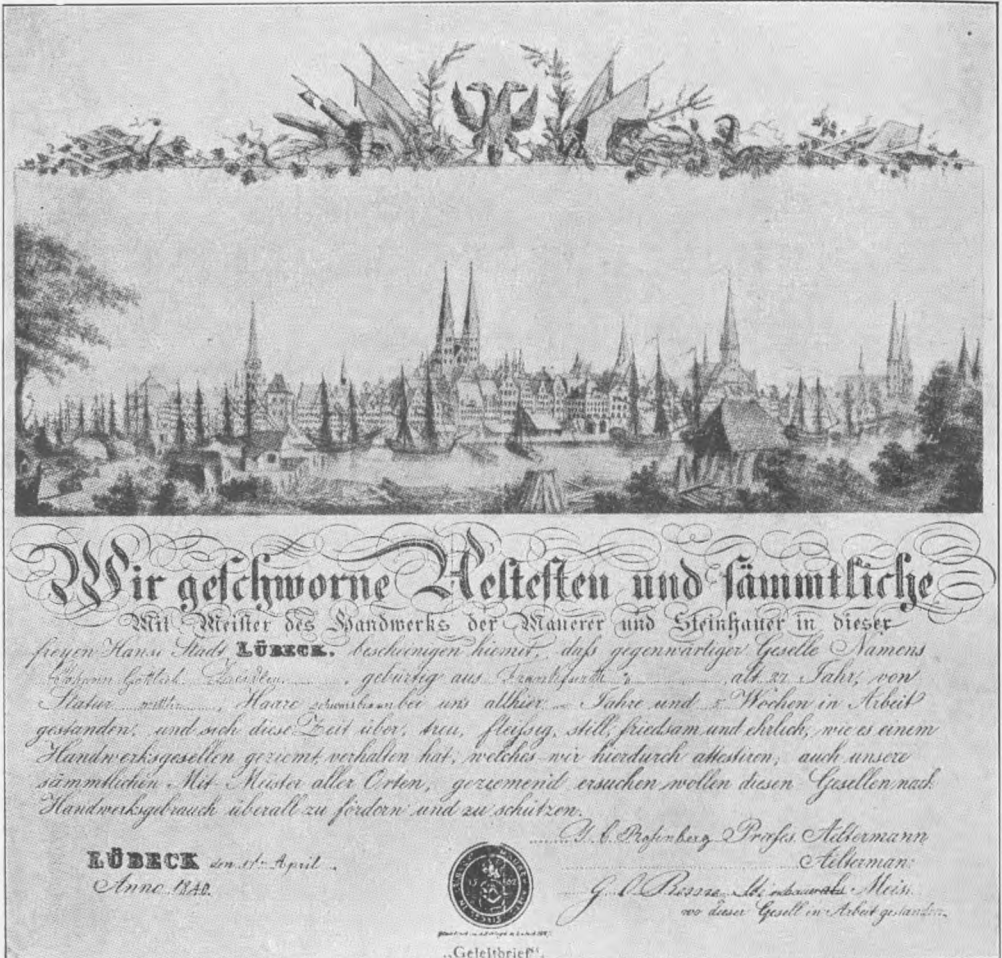 Wir geschworne Aeltesten und sämmtliche
Mit Meister des Handwerks der Mauerer und Steinhauer in dieser
freyen Hanse Stadt LÜBECK. bescheinigen hiemit, daß gegenwärtiger Geselle Namens
Johann Gottlieb gebürtig aus Frankfurth alt 27 Jahr, von
Statur mittler, Haare schwarzbraun bei uns allhier Jahre und Wochen in Arbeit
gestanden, und sich diese Zeit über, treu, fleißig, still, friedsam und ehrlich, wie es einem
Handwerksgesellen geziemt, verhalten hat, welches wir hierdurch attestiren, auch unsere
sämmtlichen Mit-Meister aller Orten, geziemend ersuchen wollen diesen Gesellen nach
Handwerksgebrauch überall zu fördern und zu schützen.
Rosenberg Præses Aeltermann
LÜBECK den April
Aelterman:
Anno 1840.
G. C. Meis.
wo dieser Gesell in Arbeit gestanden.
„Geleitbrief“.